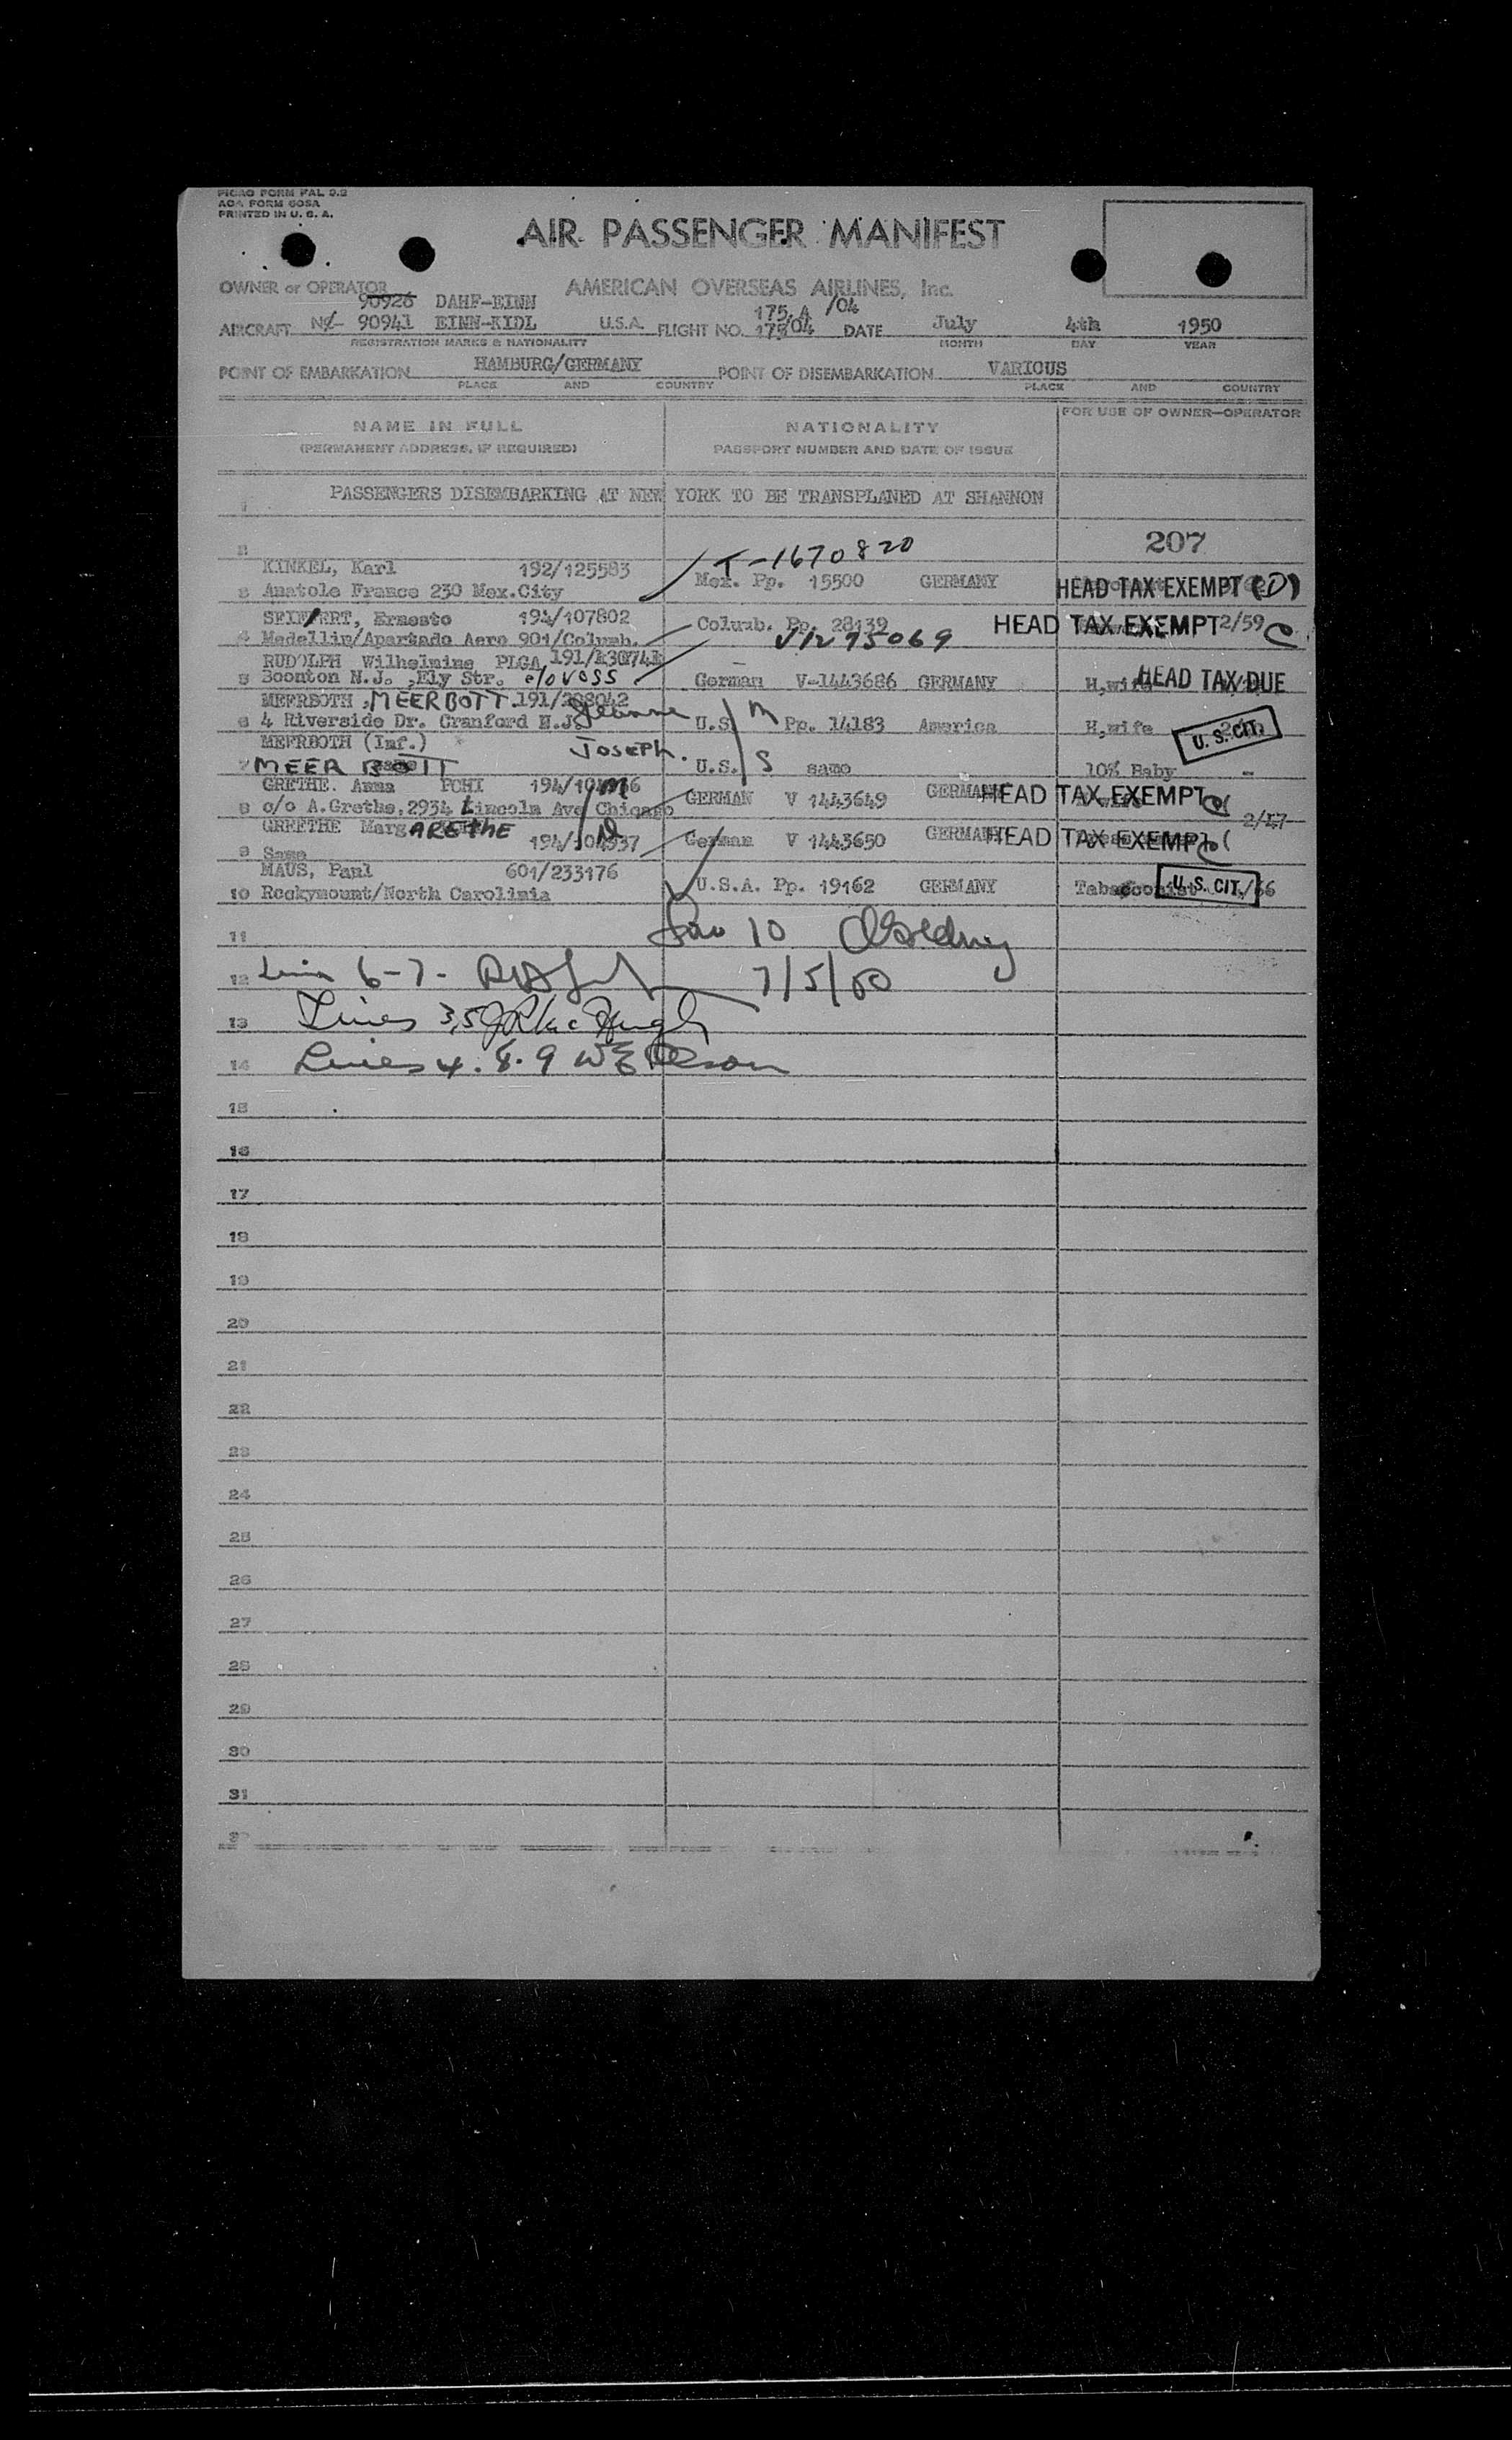 PICAO FORM FAL 2.2
AOA FORM 605A
PRINTED IN U. S. A.
AIR PASSENGER MANIFEST
OWNER or OPERATOR AMERICAN OVERSEAS AIRLINES, Inc.
90926 DAHF-EINN 175.A /04
AIRCRAFT NC- 90941 EINN-KIDL U.S.A. FLIGHT NO. 175/04 DATE July 4th 1950
REGISTRATION MARKS & NATIONALITY MONTH DAY YEAR
POINT OF EMBARKATION HAMBURG/GERMANY POINT OF DISEMBARKATION VARIOUS
PLACE AND COUNTRY PLACE AND COUNTRY
NAME IN FULL NATIONALITY FOR USE OF OWNER—OPERATOR
(PERMANENT ADDRESS, IF REQUIRED) PASSPORT NUMBER AND DATE OF ISSUE
PASSENGERS DISEMBARKING AT NEW YORK TO BE TRANSPLANED AT SHANNON
1
2 207
KINKEL, Karl 192/125583 T-1670820
3 Anatole France 230 Mex.City Mex. Pp. 15500 GERMANY HEAD TAX EXEMPT (D)
SEIFERT, Ernesto 194/107802 Columb. Pp. 28139 HEAD TAX EXEMPT 2/59 C
4 Medellin/Apartado Aero 901/Columb. V1275069
RUDOLPH Wilhelmine PLGA 191/
5 Boonton N.J. ,Ely Str. c/o VOSS German V-1443686 GERMANY H,wife HEAD TAX DUE
MEERBOTH , MEERBOTT 191/208042 Jeanne
6 4 Riverside Dr. Cranford N.J. U.S. M Pp. 14183 America H,wife U. S. CIT.
MEERBOTH (Inf.) JOSEPH.
7 MEER BOTT same U.S. S same 10% Baby -
GRETHE. Anna PCHI 194/ M
8 c/o A.Grethe,2934 Lincoln Ave Chicago GERMAN V 1443649 GERMANY HEAD TAX EXEMPT
GREETHE MargARETHE 2/17
9 Same 194/104937 German V 1443650 GERMANY HEAD TAX EXEMPT
MAUS, Paul 601/233176
10 Rockymount/North Carolinia U.S.A. Pp. 19162 GERMANY Tabacconist U. S. CIT. /66
11 10
12 6-7- 7/5/50
13 Lines 3,5
14 Lines 4. 8. 9 WE Olson
15
16
17
18
19
20
21
22
23
24
25
26
27
28
29
30
31